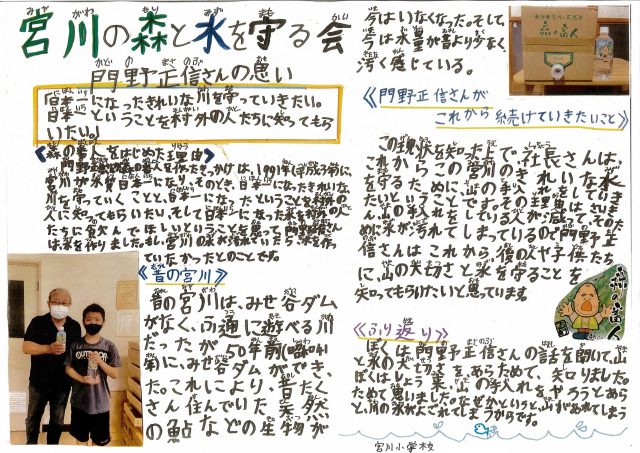 宮川の森と水を守る会
門野正信さんの思い
「日本一になったきれいな川を守っていきたい。
日本一ということを村外の人たちに知ってもら
いたい。」
《森の番人をはじめた理由》
門野正信さんが森の番人を作ったきっかけは、1991年(平成3年)に
宮川が水質日本一になり、そのとき、日本一になったきれいな
川を守っていくことと、日本一になったということを村外の
人に知ってもらいたい。そして日本一になった水を村外の人
たちに飲んでほしいということを思って門野正信さん
は、水を作りました。もし、宮川の水が汚れていたら水を作っ
ていなかったとのことです。
《昔の宮川》
昔の宮川は、みせ谷ダム
がなく、ふ通に遊べる川
だったが50年前(昭和41
年)に、みせ谷ダムができ、
た。これにより、昔たく
さん住んでいた天然
の鮎などの生物が
今はいなくなった。そして、
今は水量が昔より少なく
汚く感じている。
《門野正信さんが
これから続けていきたいこと》
この現状を知った上で、社長さんは、
これからこの宮川のきれいな水
を守るために、山の手入れをしていき
たいということです。その理由は、そのた
ん、山の手入れをしている人が減って、そのた
めに水が汚れてしまっているので門野正
信さんはこれから、後のせ代や子供たち
に、山の大切さと水を守ることを
知ってもらいたいと思っています。
森の番人
《ふり返り》
ぼくは門野正信さんの話を聞いて、山
と水の大切さを、あらためて、知りました。
ぼくはしょう来、山の手入れをやろうとあら
ためて思いました。なぜかというと、山があれてしまう
と、川の水がよごれてしまうからです。
宮川小学校
森の番人